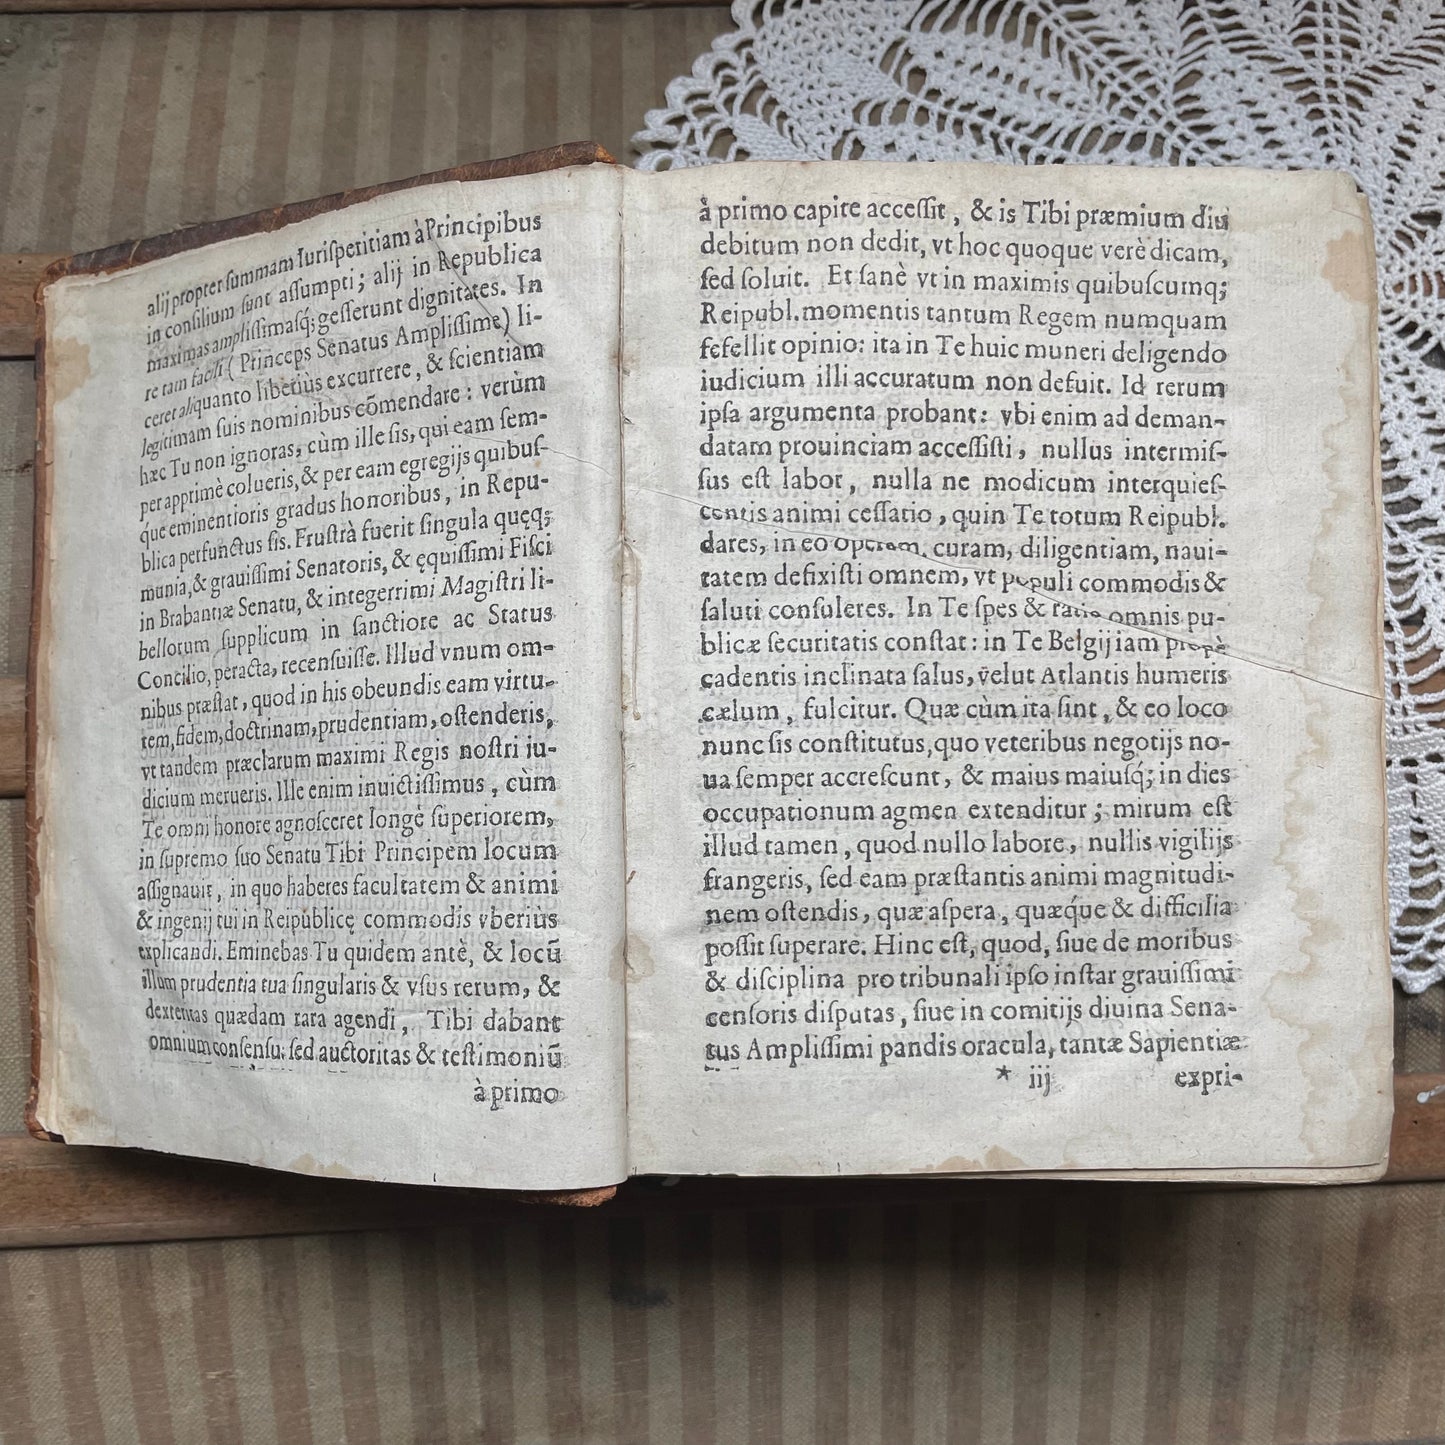 alij propter summam Iurisperitiam à Principibus
in consilium sunt assumpti; alij in Republica
maximas amplissimasq́; gesserunt dignitates. In
re tam facili (Princeps Senatus Amplissime) li-
ceret aliquanto liberiùs excurrere, & scientiam
legitimam suis nominibus cõmendare: verùm
hæc Tu non ignoras, cùm ille sis, qui eam sem-
per apprimè colueris, & per eam egregijs quibus-
que eminentioris gradus honoribus, in Repu-
blica perfunctus sis. Frustrà fuerit singula quęq;
munia, & grauissimi Senatoris, & ęquissimi Fisci
in Brabantiæ Senatu, & integerrimi Magistri li-
bellorum supplicum in sanctiore ac Status
Concilio, peracta, recensuisse. Illud vnum om-
nibus præstat, quod in his obeundis eam virtu-
tem, fidem, doctrinam, prudentiam, ostenderis,
vt tandem præclarum maximi Regis nostri iu-
dicium merueris. Ille enim inuictissimus, cùm
Te omni honore agnosceret longè superiorem,
in supremo suo Senatu Tibi Principem locum
assignauit, in quo haberes facultatem & animi
& ingenij tui in Reipublicę commodis vberiùs
explicandi. Eminebas Tu quidem antè, & locũ
illum prudentia tua singularis & vsus rerum, &
dexteritas quædam rara agendi, Tibi dabant
omnium consensu: sed auctoritas & testimoniũ
à primo
à primo capite accessit, & is Tibi præmium diu
debitum non dedit, vt hoc quoque verè dicam,
sed soluit. Et sanè vt in maximis quibuscumq;
Reipubl. momentis tantum Regem numquam
fefellit opinio: ita in Te huic muneri deligendo
iudicium illi accuratum non defuit. Id rerum
ipsa argumenta probant: vbi enim ad deman-
datam prouinciam accessisti, nullus intermis-
sus est labor, nulla ne modicum interquies-
centis animi cessatio, quin Te totum Reipubl.
dares, in eo operam, curam, diligentiam, naui-
tatem defixisti omnem, vt populi commodis &
saluti consuleres. In Te spes & ratio omnis pu-
blicæ securitatis constat: in Te Belgij iam propè
cadentis inclinata salus, velut Atlantis humeris
cælum, fulcitur. Quæ cùm ita sint, & eo loco
nunc sis constitutus, quo veteribus negotijs no-
ua semper accrescunt, & maius maiusq́; in dies
occupationum agmen extenditur; mirum est
illud tamen, quod nullo labore, nullis vigilijs
frangeris, sed eam præstantis animi magnitudi-
nem ostendis, quæ aspera, quæq́ue & difficilia
possit superare. Hinc est, quod, siue de moribus
& disciplina pro tribunali ipso instar grauissimi
censoris disputas, siue in comitijs diuina Sena-
tus Amplissimi pandis oracula, tantæ Sapientiæ
* iij expri-